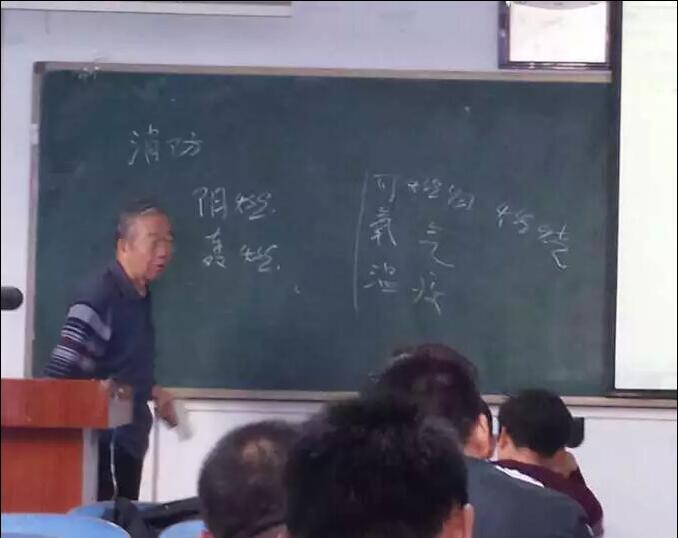 消防
阴燃
轰燃
可燃物 燃烧
氧气
温度